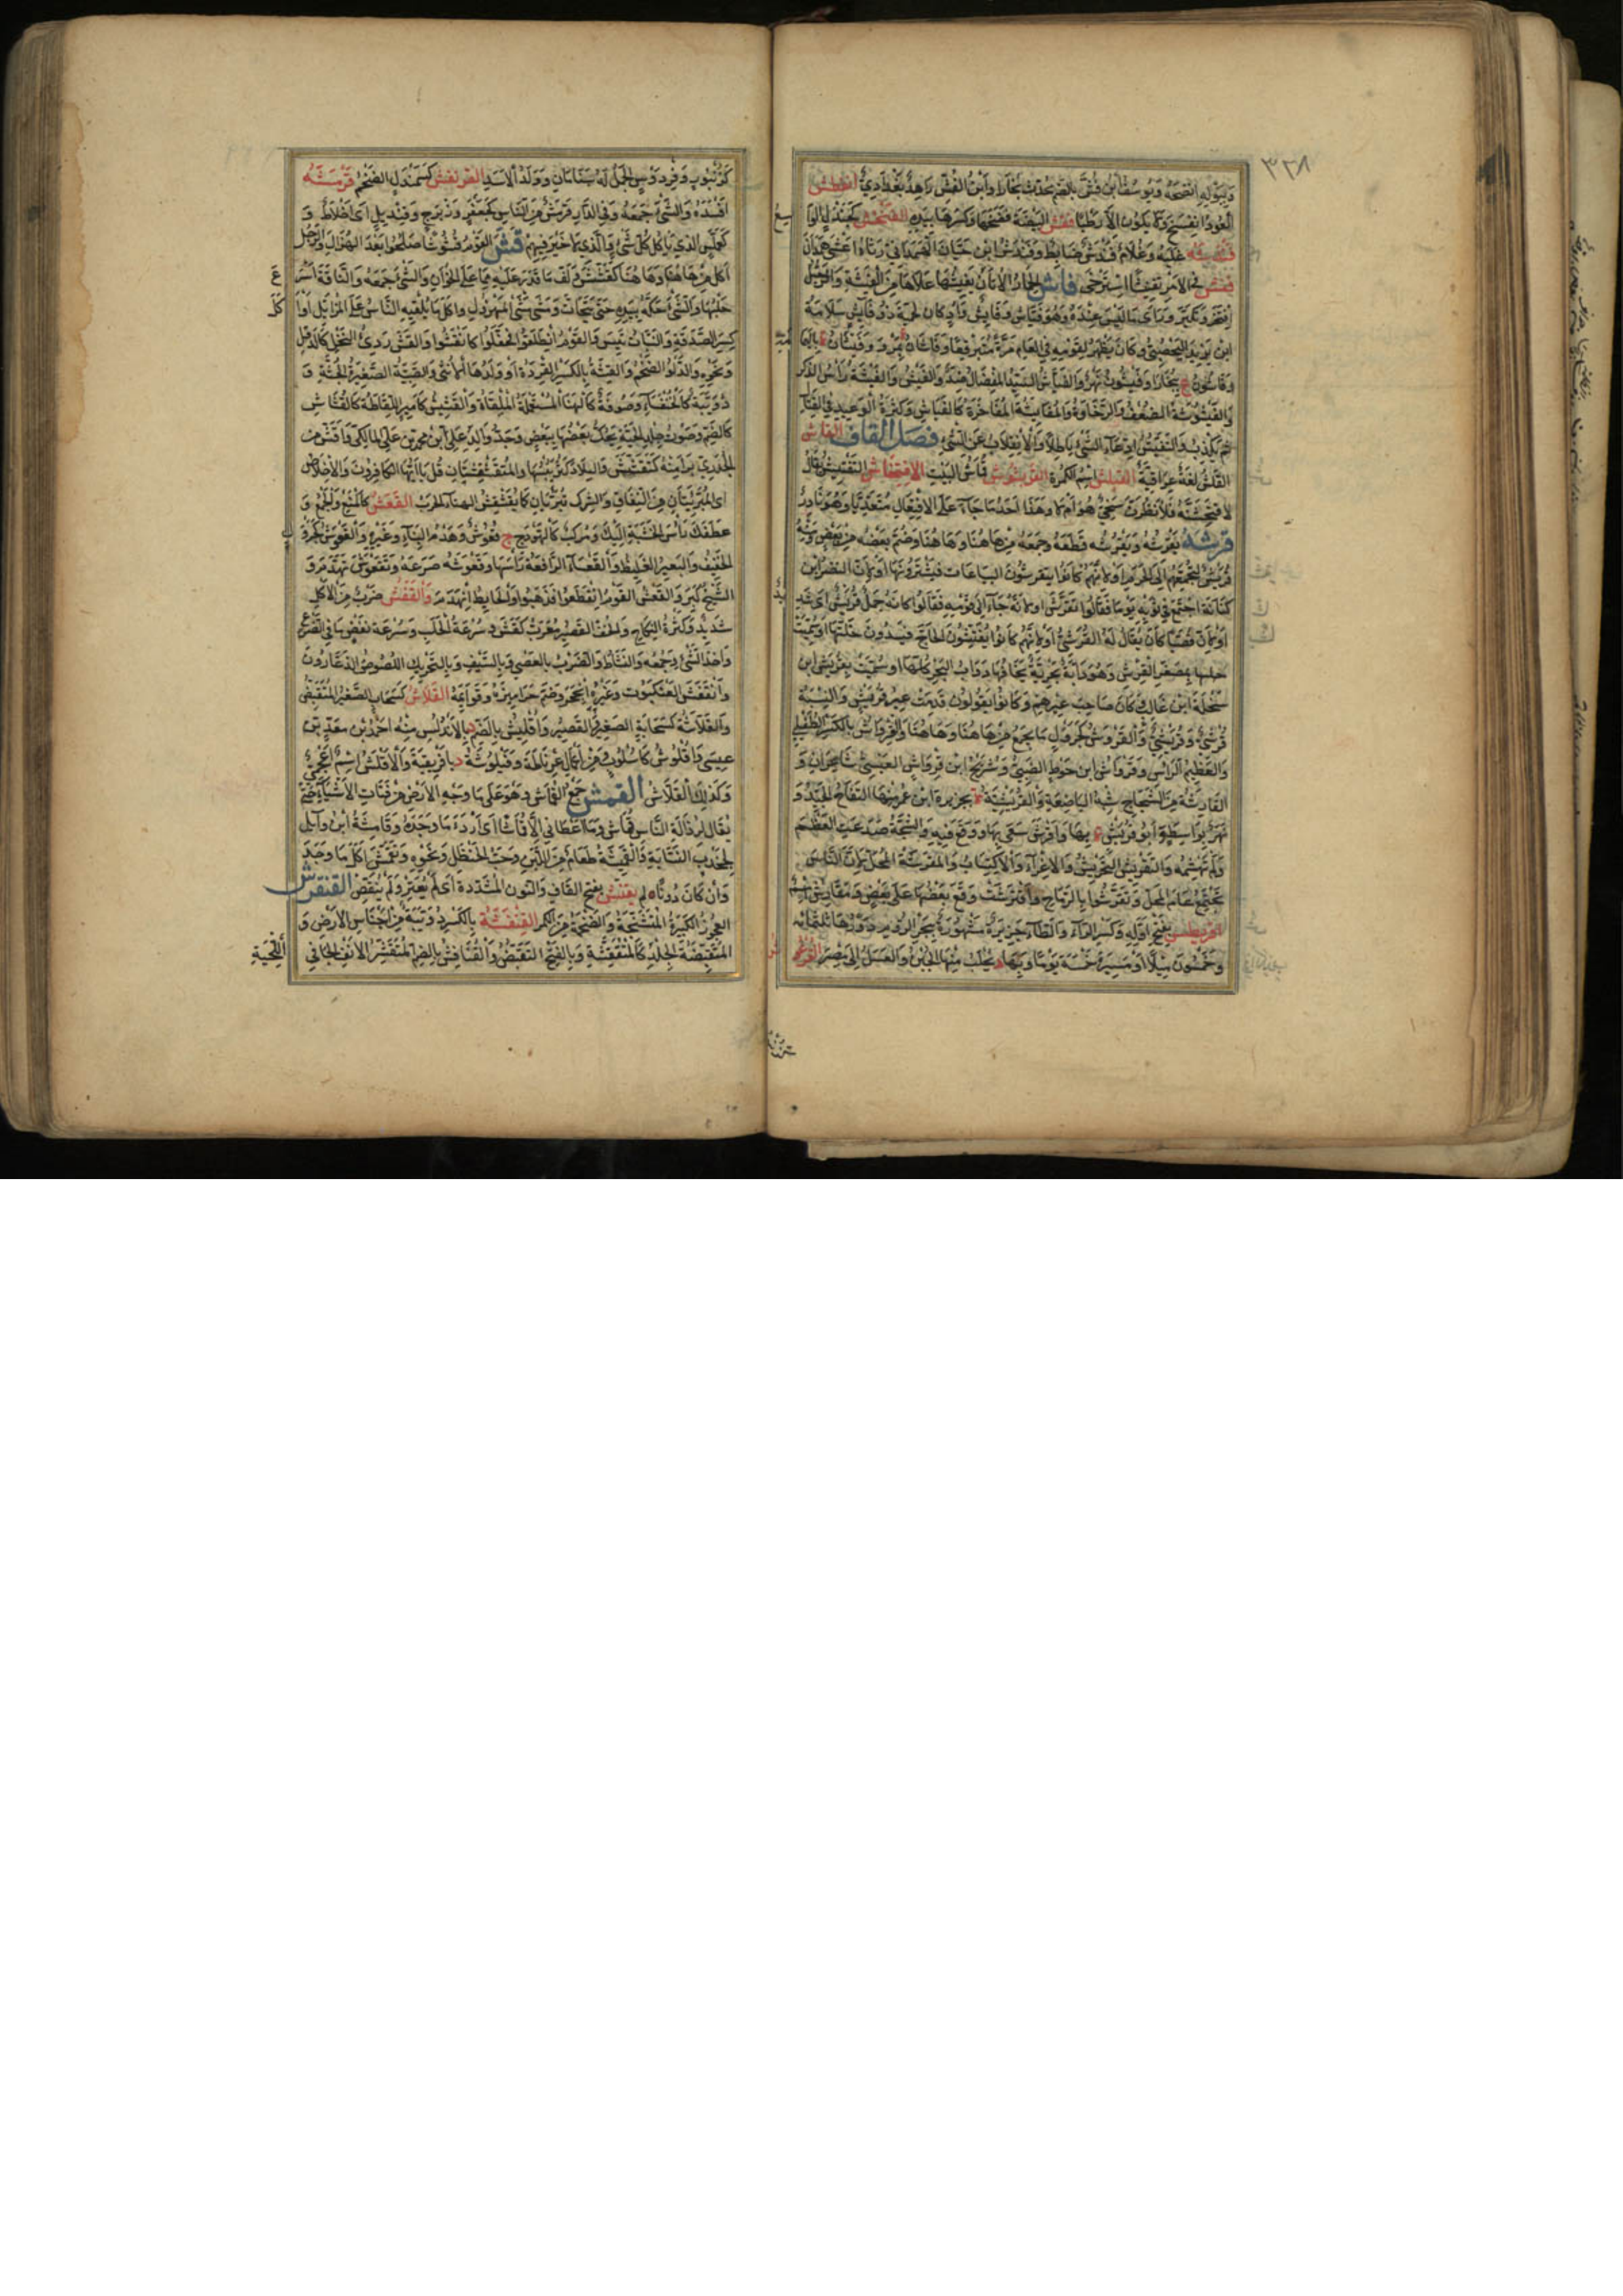 ٣٢٨
وببوله انضحه ويوسف ابن فش بالضم محدث بخارا وابن الفش زاهد بغدادي انفطش
العود انفسخ ولا يكون الا رطبا فقش البيضة فضخها وكسرها بيده الفنجش كجندل الواسع
فندشه غلبه وغلام فندش ضابط وفندش ابن حيان الهمداني رثاه اعشى همدان
فنش في الامر تفنيشا استرخى فاش الحمار الاتان يفيشها علاها من الفيشة والرجل
افتخر وتكبر وراى ما ليس عنده وهو فياش وفايش واد كان لحية ذو فايش سلامة
ابن يزيد اليحصبي وكان يظهر لقومه في العام مرة متبرقعا وفاشان ة بمرو وفيشان ة باليمامة
وفاشون ع ببخارا وفيشون نهر والفياش السيد المفضال ضد والفيش والفيشة راس الذكر
والفيشوشة الضعف والرخاوة والمفايشة المفاخرة كالفياش وكثرة الوعيد في القتال
ثم يكذب والتفيش ادعاء الشئ باطلا والانقلاب عن الشئ فصل القاف القاش
القلش لغة عراقية القبلش اسم الكمرة القربشوش قماش البيت الاقتحاش التفتيش يقال
لاقتحشنه فلانظرن سخي هو ام لا وهذا احد ما جاء على الافتعال متعديا وهو نادر
قرشه يقرشه ويقرشه قطعه وجمعه من هاهنا وهاهنا وضم بعضه من بعض ومنه
قريش لتجمعهم الى الحرم او لانهم كانوا يتقرشون البياعات فيشترونها او لان النضر ابن
كنانة اجتمع في ثوبه يوما فقالوا تقرش او لانه جاء الى قومه فقالوا كانه جمل قريش اي شديد
او لان قصيا كان يقال له القرشي او لانهم كانوا يفتشون الحاج فيسدون خلتها او سميت
بمصغر القرش وهو دابة بحرية تخافها دواب البحر كلها او سميت بقريش ابن
مخلد ابن غالب كان صاحب عيرهم وكانوا يقولون قدمت عير قريش والنسبة
قرشي وقريشي والقروش كجرول ما يجمع من هاهنا وهاهنا والقرواش بالكسر الطفيلي
والعظيم الراس وقرواش ابن حوط الضبي وشريح ابن قرواش العبسي شاعران و
القارشة من الشجاج شبه الباضعة والقريشية ة بجزيرة ابن عمر منها التفاح الجيد و
نهر بواسط وابو قريش ة بها واقرش سعى بها ووقع فيه والشجة صدعت العظم
ولم تهشمه والتقريش التحريش والاغراء والاكتساب والمقرشة المحل لان الناس
تجتمع عام المحل وتقرشوا بالرماح واقترشت وقع بعضها على بعض ومقارش اسم
اقريطش بفتح اوله وكسر الراء والطاء جزيرة مشهورة ببحر الروم دورها ثلثماية
وخمسون ميلا او مسيرة خمسة عشر يوما وبها د يجلب منها الجبن والعسل الى مصر القرعوش
كزنبور وفردوس الجمل له سنامان وولد الاسد القرنفش كسمندل الضخم قرمشه
افسده والشئ جمعه وفي الدار قرمش من الناس كجعفر وزبرج وقنديل اي اخلاط و
كعملس الذي ياكل كل شئ والذي لا خير فيهم قش القوم قشوشا صلحوا بعد الهزال والرجل
اكل من هاهنا وهاهنا كقشش ولف ما قدر عليه مما على الخوان والشئ جمعه والناقة اسرع
حلبها والشئ حكه بيده حتى يتحات ومشى مشي المهزول واكل ما يلقيه الناس على المزابل او اكل
كسر الصدقة والنبات يبس والقوم انطلقوا فجفلوا كانقشوا والقش ردئ النخل كالدقل
ونحوه والدلو الضخم والقشة بالكسر القردة او ولدها الانثى والصبية الصغيرة الجثة و
دويبة كالخنفساء وصوفة كالهناء المستعملة الملقاة والقشيش كامير اللقاطة كالقشاش
كالضم وصوت جلد الحية يحك بعضها ببعض وجد والد علي ابن محمد بن علي المالكي واقش من
الجدري برا منه كتقشقش والبلاد كثر يبسها والمقشقشتان قل يا ايها الكافرون والاخلاص
اي المبرئتان من النفاق والشرك تبرئان كما يقشقش الهناء الجرب القعش كالمنع الجمع و
عطفك راس الخشبة اليك ومركب كالهودج ج قعوش وهدم البناء وغيره والقعوش كجرول
الخفيف والبعير الغليظ والقعشاء الرافعة راسها وقعوشه صرعه وتقعوش تهدم و
الشيخ كبر والقعش القوم انقطعوا فذهبوا والحايط انهدم والقفش ضرب من الاكل
شديد وكثرة النكاح والخف القصير معرب كفش وسرعة الحلب وسرعة نفض ما في الضرع
واخذ الشئ وجمعه والنشاط والضرب بالعصي وبالسيف وبالتحريك اللصوص الدعارون
وانقفش العنكبوت وغيره انجحر وضم جراميزه وقوايمه القلاش كسحاب الصغير المتقبض
والقلاشة كسحابة الصغر والقصر واقليش بالضم د بالاندلس منه احمد بن معد بن
عيسى واقلوش كاسلوب من اعمال غرناطة وقيلوشة د بافريقية والاقلش اسم اعجمي
وكذلك القلاش القمش جمع القماش وهو على ما وجه الارض من فتات الاشياء حتى
يقال لرذالة الناس قماش وما اعطاني الا قماشا اي اردء ما وجده وقامشة ابن وايلي
لجدب النسابة والقميشة طعام من اللبن وحب الحنظل ونحوه وتقمش اكل ما وجد
وان كان دونا ه لم يقنش بفتح القاف والنون المشددة اي لم يعتر ولم ينقص القنفرش
العجوز الكبيرة المتشنجة والضخمة من الكمر القنفشة بالكسر دويبة من اجناس الارض و
المتقبضة الجلد كالمتقنفشة وبالفتح التقبض والقنافش بالضم المتقشر الانف الجافي
اللحية